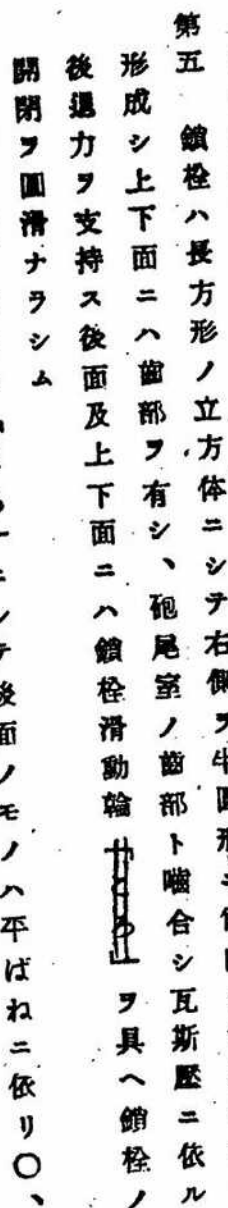 第五　鎖栓ハ長方形ノ立方体ニシテ右側ヲ半圓形ニ
形成シ上下面ニハ齒部ヲ有シ、砲尾室ノ齒部ト嚙合シ瓦斯壓ニ依ル
後退力ヲ支持ス後面及上下面ニハ鎖栓滑動輪ヲ具ヘ鎖栓ノ
開閉ヲ圓滑ナラシム
ニシテ後面ノモノハ平ばねニ依リ〇、